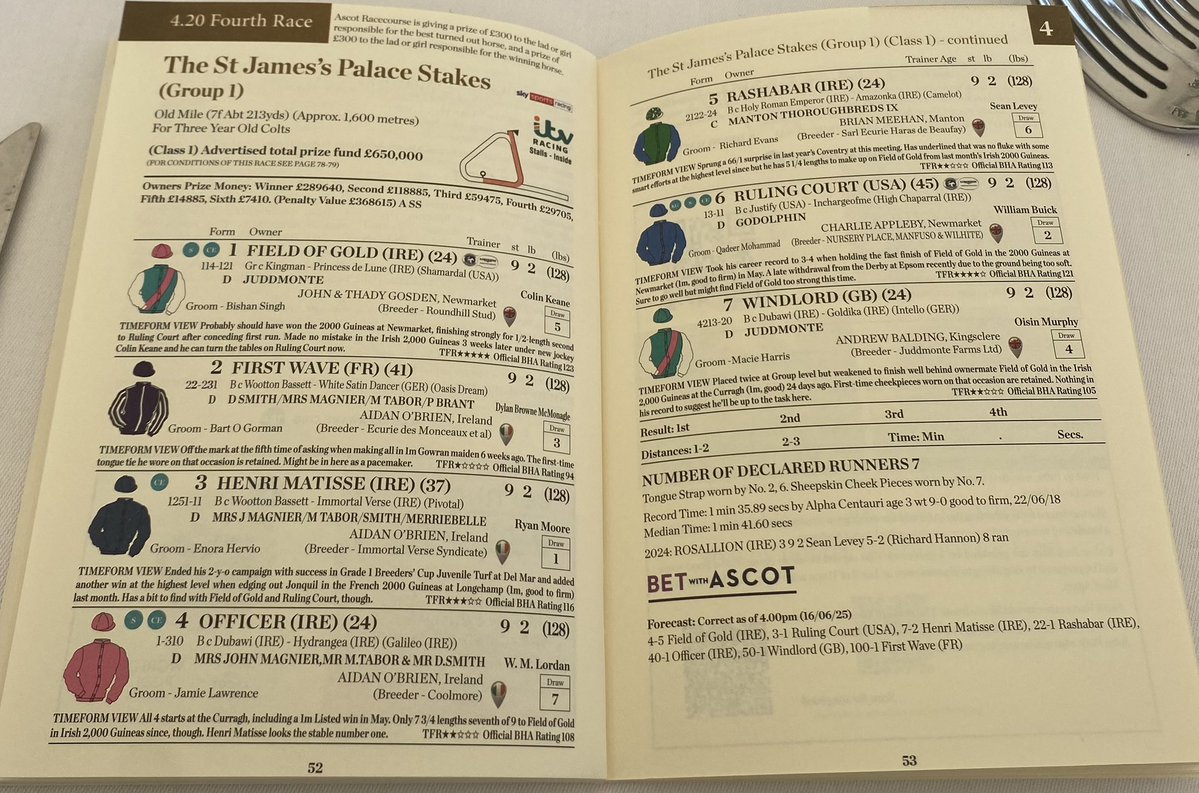 4.20 Fourth Race
Ascot Racecourse is giving a prize of £300 to the lad or girl
responsible for the best turned out horse, and a prize of
£300 to the lad or girl responsible for the winning horse.
The St James's Palace Stakes
(Group 1)
sky sports racing
Old Mile (7f Abt 213yds) (Approx. 1,600 metres)
For Three Year Old Colts
itv
RACING
Stalls - Inside
(Class 1) Advertised total prize fund £650,000
(FOR CONDITIONS OF THIS RACE SEE PAGE 78-79)
Owners Prize Money: Winner £289640, Second £118885, Third £59475, Fourth £29705,
Fifth £14885, Sixth £7410. (Penalty Value £368615) A SS
Form Owner Trainer st lb (lbs)
S CE 1 FIELD OF GOLD (IRE) (24) 9 2 (128)
114-121 Gr c Kingman - Princess de Lune (IRE) (Shamardal (USA))
D JUDDMONTE Colin Keane
JOHN & THADY GOSDEN, Newmarket Draw
Groom - Bishan Singh (Breeder - Roundhill Stud) 5
TIMEFORM VIEW Probably should have won the 2000 Guineas at Newmarket, finishing strongly for 1/2-length second
to Ruling Court after conceding first run. Made no mistake in the Irish 2,000 Guineas 3 weeks later under new jockey
Colin Keane and he can turn the tables on Ruling Court now. TFR★★★★★ Official BHA Rating 123
2 FIRST WAVE (FR) (41) 9 2 (128)
22-231 B c Wootton Bassett - White Satin Dancer (GER) (Oasis Dream)
D D SMITH/MRS MAGNIER/M TABOR/P BRANT Dylan Browne McMonagle
AIDAN O'BRIEN, Ireland Draw
Groom - Bart O Gorman (Breeder - Ecurie des Monceaux et al) 3
TIMEFORM VIEW Off the mark at the fifth time of asking when making all in 1m Gowran maiden 6 weeks ago. The first-time
tongue tie he wore on that occasion is retained. Might be in here as a pacemaker. TFR★☆☆☆☆ Official BHA Rating 94
CE 3 HENRI MATISSE (IRE) (37) 9 2 (128)
1251-11 B c Wootton Bassett - Immortal Verse (IRE) (Pivotal)
D MRS J MAGNIER/M TABOR/SMITH/MERRIEBELLE Ryan Moore
AIDAN O'BRIEN, Ireland Draw
Groom - Enora Hervio (Breeder - Immortal Verse Syndicate) 1
TIMEFORM VIEW Ended his 2-y-o campaign with success in Grade 1 Breeders' Cup Juvenile Turf at Del Mar and added
another win at the highest level when edging out Jonquil in the French 2000 Guineas at Longchamp (1m, good to firm)
last month. Has a bit to find with Field of Gold and Ruling Court, though. TFR★★★☆☆ Official BHA Rating 116
S CE 4 OFFICER (IRE) (24) 9 2 (128)
1-310 B c Dubawi (IRE) - Hydrangea (IRE) (Galileo (IRE))
D MRS JOHN MAGNIER, MR M.TABOR & MR D.SMITH W. M. Lordan
AIDAN O'BRIEN, Ireland Draw
Groom - Jamie Lawrence (Breeder - Coolmore) 7
TIMEFORM VIEW All 4 starts at the Curragh, including a 1m Listed win in May. Only 7 3/4 lengths seventh of 9 to Field of Gold
in Irish 2,000 Guineas since, though. Henri Matisse looks the stable number one. TFR★★☆☆☆ Official BHA Rating 108
52
4
The St James's Palace Stakes (Group 1) (Class 1) - continued
Form Owner Trainer Age st lb (lbs)
5 RASHABAR (IRE) (24) 9 2 (128)
2122-24 B c Holy Roman Emperor (IRE) - Amazonka (IRE) (Camelot)
C MANTON THOROUGHBREDS IX Sean Levey
BRIAN MEEHAN, Manton Draw
Groom - Richard Evans (Breeder - Sarl Ecurie Haras de Beaufay) 6
TIMEFORM VIEW Sprung a 66/1 surprise in last year's Coventry at this meeting. Has underlined that was no fluke with some
smart efforts at the highest level since but he has 5 1/4 lengths to make up on Field of Gold from last month's Irish 2000 Guineas.
TFR★★☆☆☆ Official BHA Rating 113
S CE 6 RULING COURT (USA) (45) 9 2 (128)
13-11 B c Justify (USA) - Inchargeofme (High Chaparral (IRE))
D GODOLPHIN William Buick
CHARLIE APPLEBY, Newmarket Draw
Groom - Qadeer Mohammad (Breeder - NURSERY PLACE, MANFUSO & WILHITE) 2
TIMEFORM VIEW Took his career record to 3-4 when holding the fast finish of Field of Gold in the 2000 Guineas at
Newmarket (1m, good to firm) in May. A late withdrawal from the Derby at Epsom recently due to the ground being too soft.
Sure to go well but might find Field of Gold too strong this time. TFR★★★★☆ Official BHA Rating 121
7 WINDLORD (GB) (24) 9 2 (128)
4213-20 B c Dubawi (IRE) - Goldika (IRE) (Intello (GER))
D JUDDMONTE Oisin Murphy
ANDREW BALDING, Kingsclere Draw
Groom - Macie Harris (Breeder - Juddmonte Farms Ltd) 4
TIMEFORM VIEW Placed twice at Group level but weakened to finish well behind ownermate Field of Gold in the Irish
2,000 Guineas at the Curragh (1m, good) 24 days ago. First-time cheekpieces worn on that occasion are retained. Nothing in
his record to suggest he'll be up to the task here. TFR★★☆☆☆ Official BHA Rating 105
Result: 1st 2nd 3rd 4th
Distances: 1-2 2-3 Time: Min . Secs.
NUMBER OF DECLARED RUNNERS 7
Tongue Strap worn by No. 2, 6. Sheepskin Cheek Pieces worn by No. 7.
Record Time: 1 min 35.89 secs by Alpha Centauri age 3 wt 9-0 good to firm, 22/06/18
Median Time: 1 min 41.60 secs
2024: ROSALLION (IRE) 3 9 2 Sean Levey 5-2 (Richard Hannon) 8 ran
BET WITH ASCOT
Forecast: Correct as of 4.00pm (16/06/25)
4-5 Field of Gold (IRE), 3-1 Ruling Court (USA), 7-2 Henri Matisse (IRE), 22-1 Rashabar (IRE),
40-1 Officer (IRE), 50-1 Windlord (GB), 100-1 First Wave (FR)
53